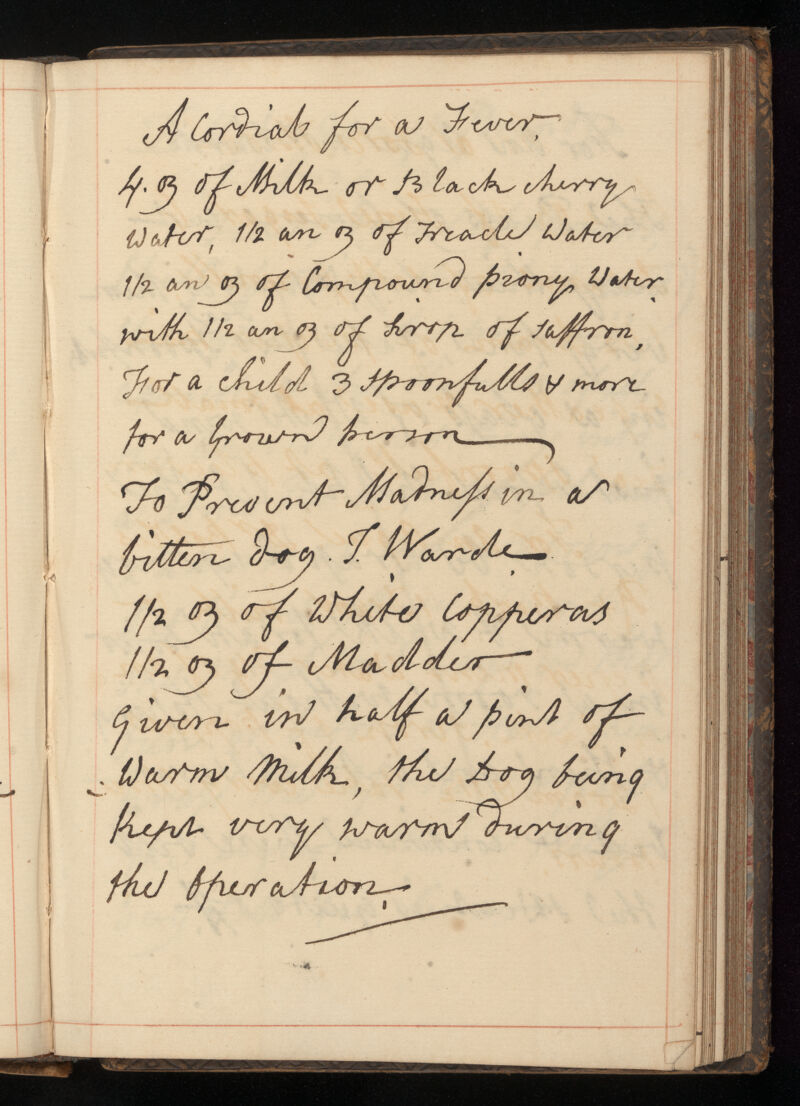 A Cordial for a Fever,
4. oz of Milk or Black cherry
Water, 1/2 an oz of Treacle Water
1/2 an oz of Compound piony Water
with 1/2 an oz of Sirop of Saffron,
For a child 3 spoonfulls & more
for a Grown person
To Prevent Madness in a
bitten Dog. T. Warde
1/2 oz of White Copperas
1/2 oz of Madder
Given in half a pint of
Warm Milk, the Dog being
Kept very warm during
the Operation.